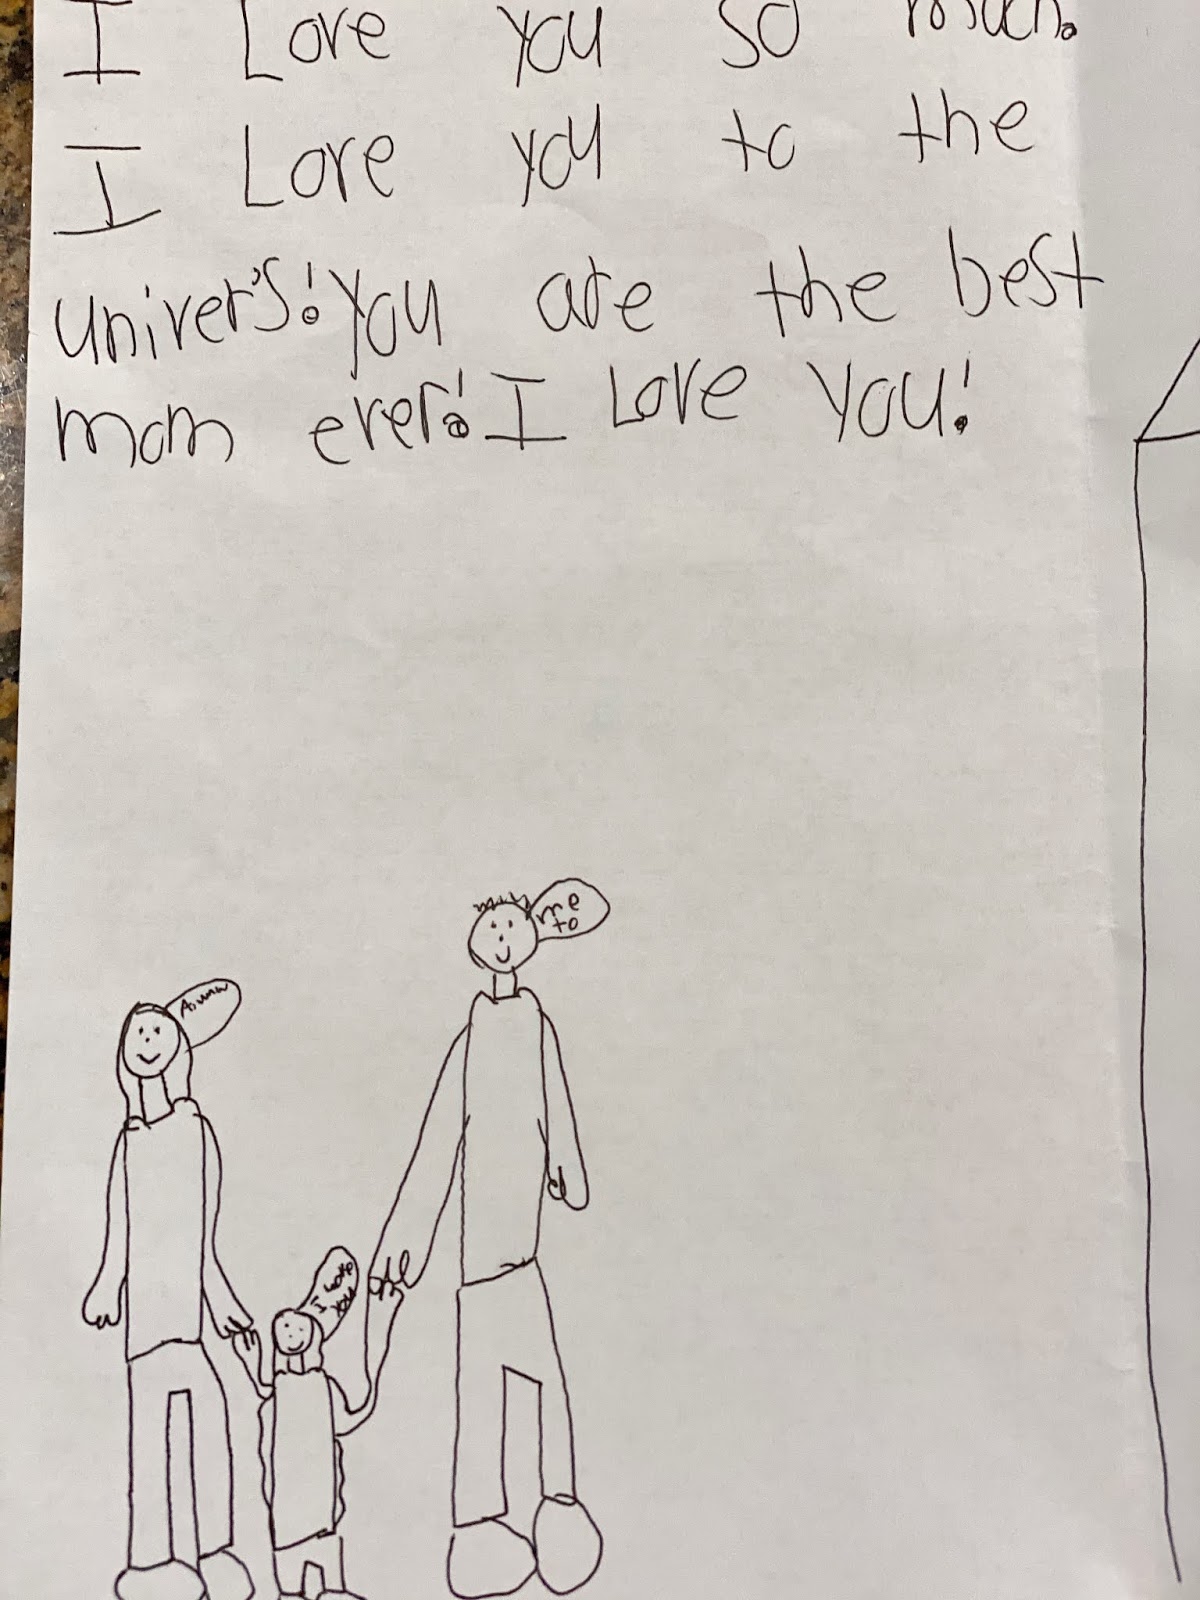 I Love you so much.
I Love you to the
univers! You are the best
mom ever! I Love you!
me
to
Awww
I Love
you